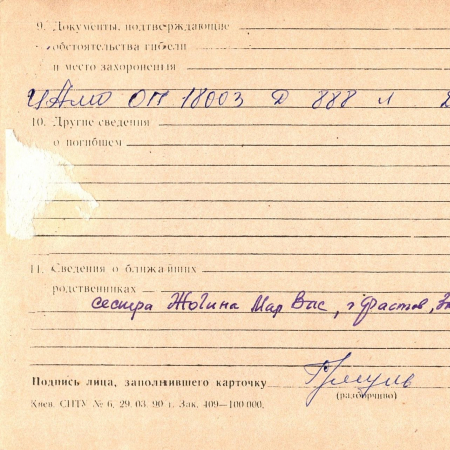 9. Документы, подтверждающие
обстоятельства гибели
и место захоронения
ЦАМО ОП 18003 Д 888 л
10. Другие сведения
о погибшем
11. Сведения о ближайших
родственниках
сестра Жогина Мар Вас, г Фастов,
Подпись лица, заполнившего карточку
(разборчиво)
Киев. СНТУ № 6. 29. 03. 90 г. Зак. 409—100 000.